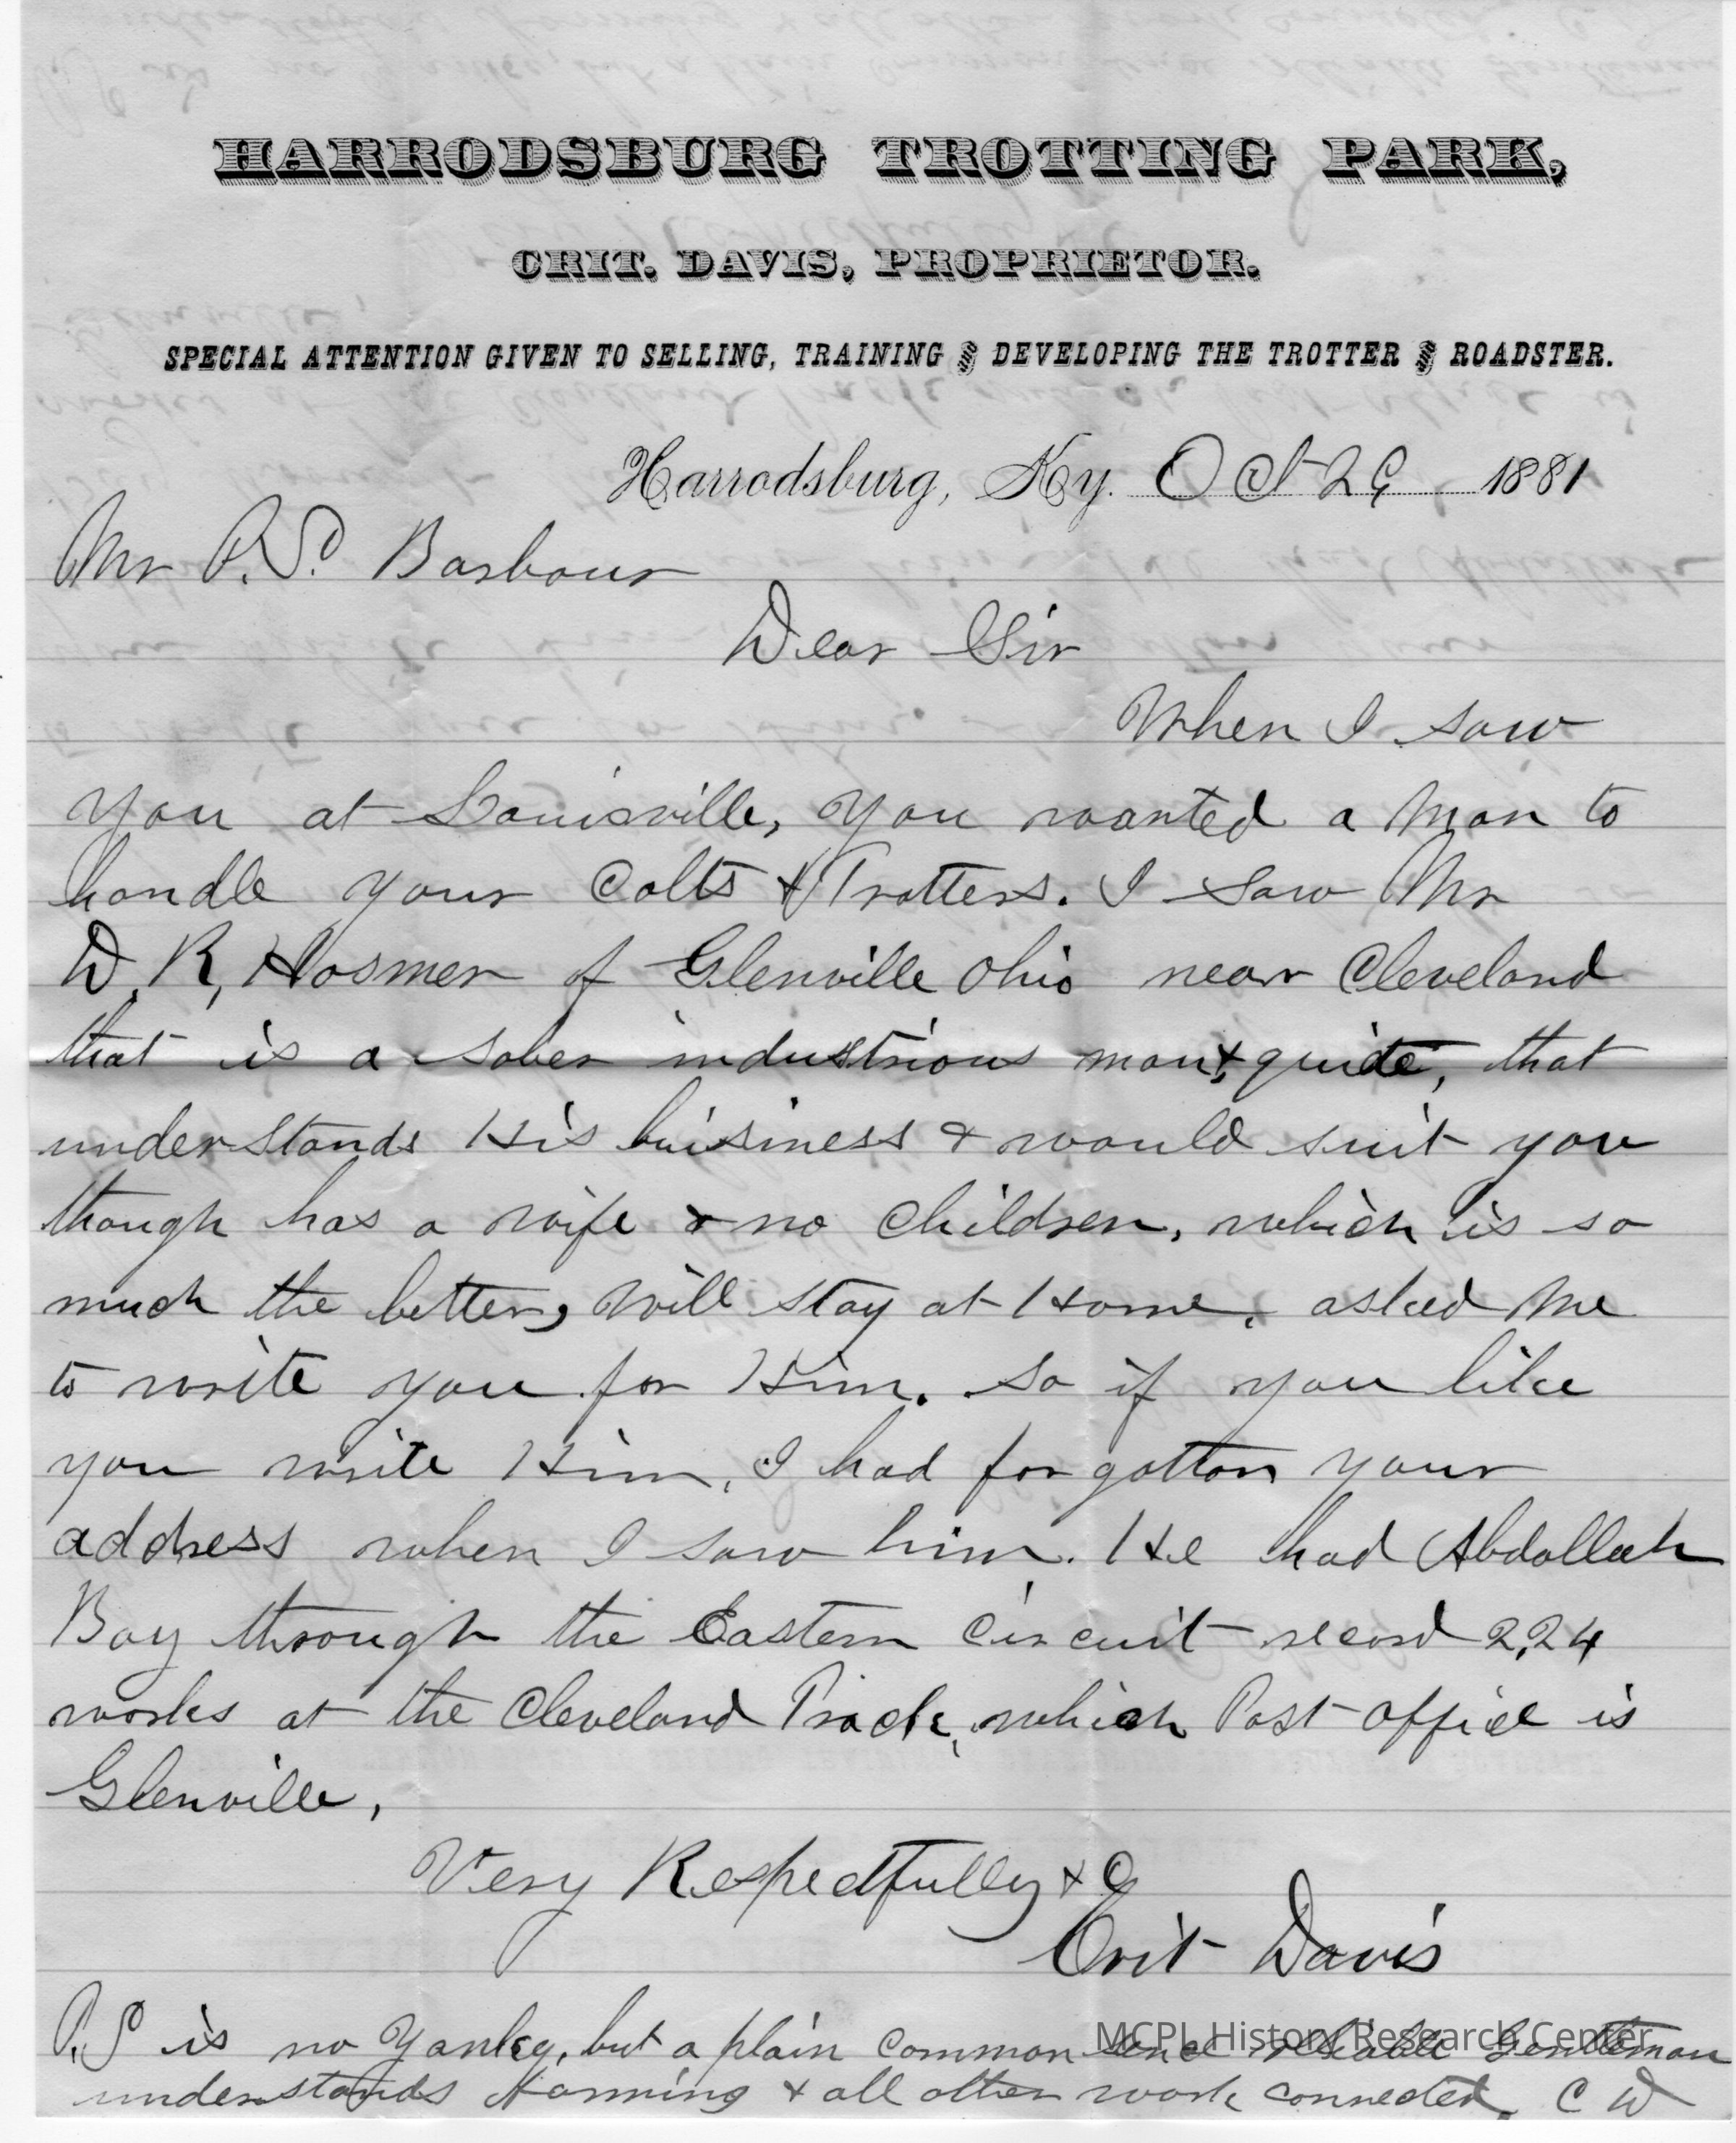 HARRODSBURG TROTTING PARK,
CRIT. DAVIS, PROPRIETOR.
SPECIAL ATTENTION GIVEN TO SELLING, TRAINING & DEVELOPING THE TROTTER & ROADSTER.
Harrodsburg, Ky. Oct 29 1881
Mr P.S. Barbour
Dear Sir
When I saw
you at Louisville, you wanted a man to
handle your Colts & Trotters. I saw Mr
D. R, Hosmer of Glenville Ohio near Cleveland
that is a sober industrious man & quite, that
understands His buisiness & would suit you
though has a wife & no Children, which is so
much the better, Will stay at Home, asked Me
to write you for Him. So if you like
you write Him, I had forgotton your
address when I saw him. He had Abdallah
Boy through the Eastern Circuit record 2,24
works at the Cleveland Track, which Post office is
Glenville,
Very Respectfully & C
Crit Davis
P.S is no Yankey, but a plain common reliable Gentleman
understands Farming & all other work connected, C D
MCPL History Research Center